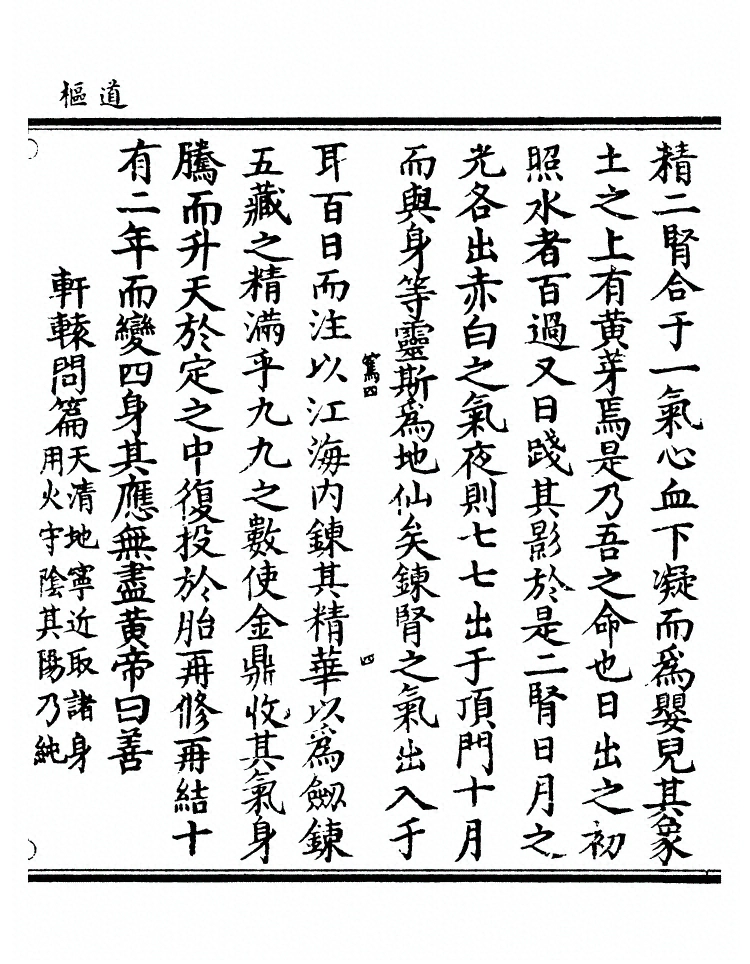 道樞
精二腎合于一氣心血下凝而爲嬰兒其象
土之上有黃芽焉是乃吾之命也日出之初
照水者百過又日踐其影於是二腎日月之
光各出赤白之氣夜則七七出于頂門十月
而與身等靈斯爲地仙矣鍊腎之氣出入于
篤四
四
耳百日而注以江海內鍊其精華以爲劒鍊
五藏之精滿乎九九之數使金鼎收其氣身
騰而升天於定之中復投於胎再修再結十
有二年而變四身其應無盡黃帝曰善
軒轅問篇
天清地寧近取諸身
用火守陰其陽乃純